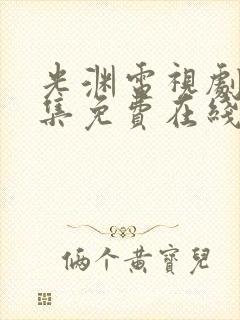 光渊電視劇
集免費在綫
倆个黄寶兒